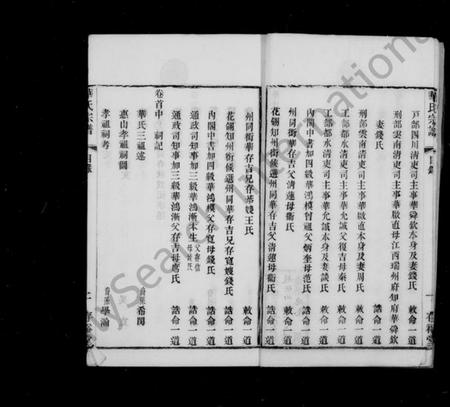 華氏宗譜 目錄 一
戶部四川清吏司主事華舜欽本身及妻 敕命一道
刑部雲南清吏司主事華啟直母江西瑞州府知府華舜欽
妻錢氏 敕命一道
刑部雲南清吏司主事華啟直本身及妻周氏 敕命一道
工部都水清吏司主事華允誠父復吉母秦氏 敕命一道
工部都水清吏司主事華允誠本身及妻談氏 敕命一道
內閣中書加四級華鴻模曾祖父炳奎母范氏 誥命一道
州同銜華存吉父清蓮母衢氏 誥命一道
花翎知州銜候選州同華存吉父清蓮母衢氏 誥命一道
州同銜華存吉兄存恭嫂王氏 敕命一道
花翎知州銜候選州同華存吉兄存寬嫂錢氏 誥命一道
內閣中書加四級華鴻模父存寬母錢氏 誥命一道
通政司知事加三級華鴻漸本生父存信母 氏 誥命一道
通政司知事加三級華鴻漸父存吉母唐氏 誥命一道
卷首中 祠記
華氏三祖述 希閎
惠山孝祖祠圖
孝祖祠考 學瀚
華氏宗譜 目錄 二
MySearch International